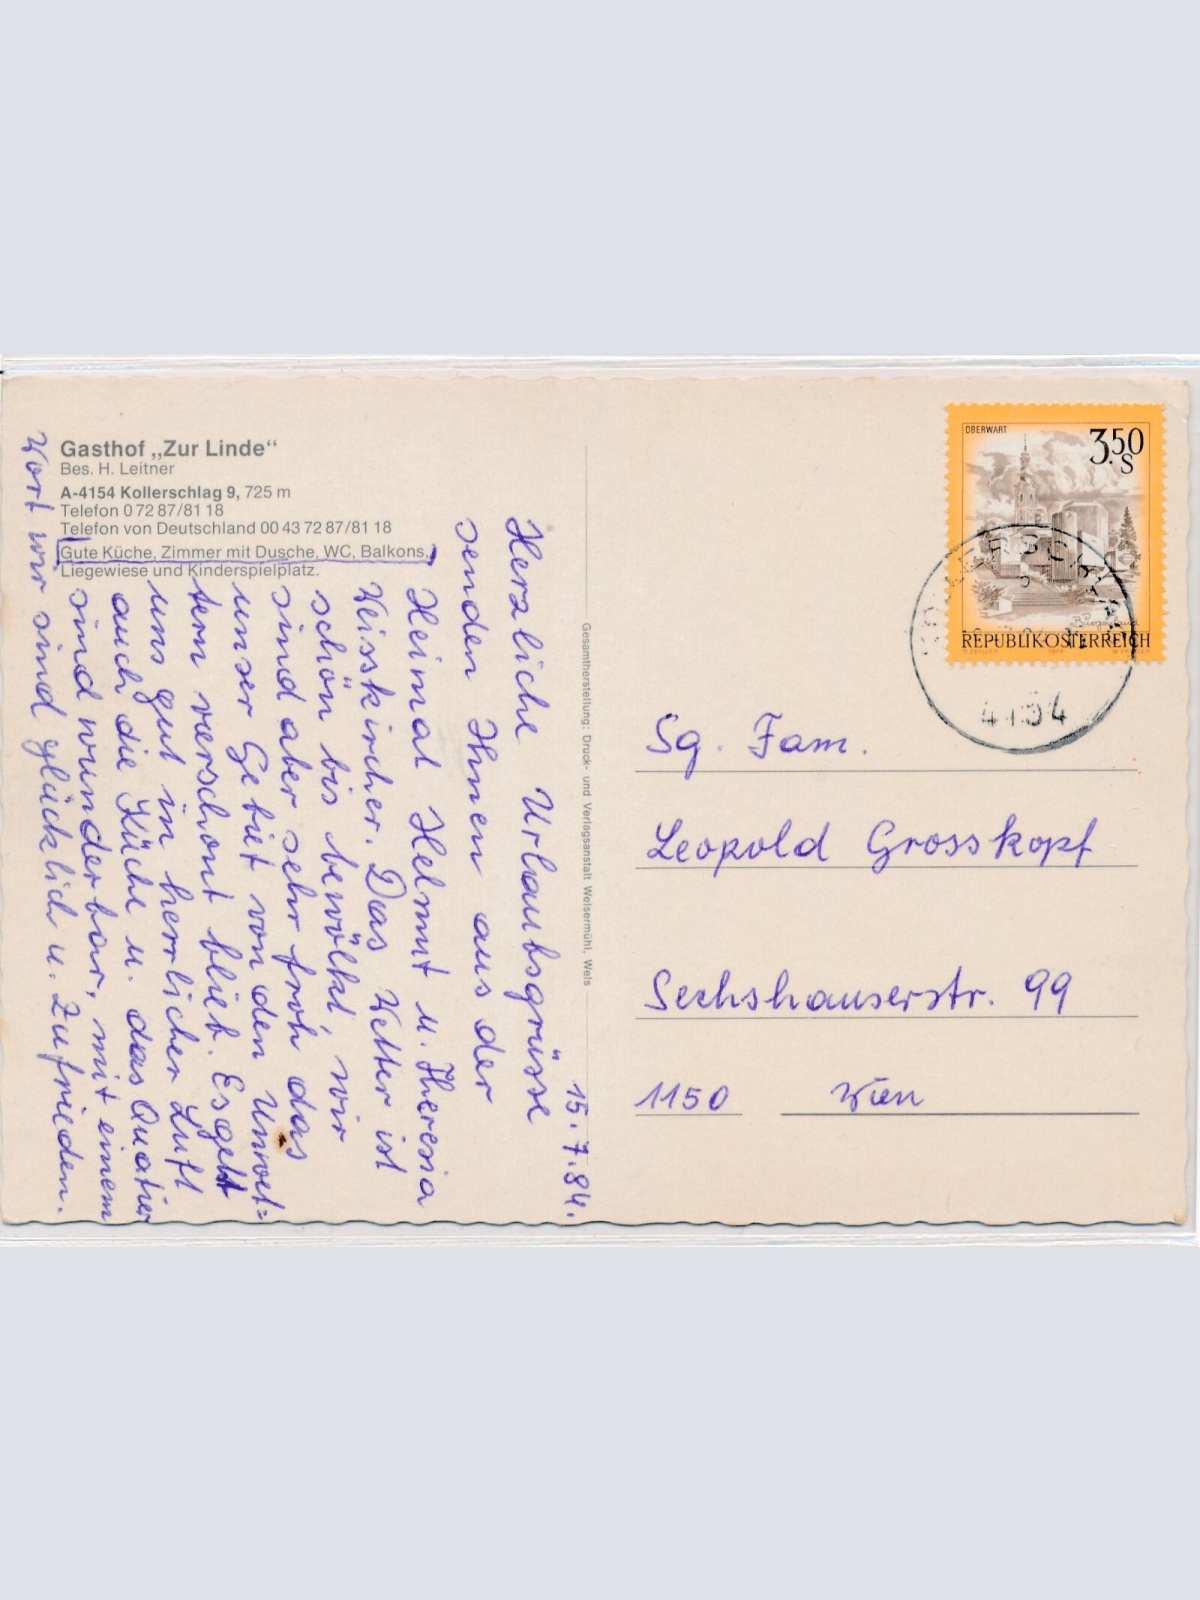 Gasthof „Zur Linde“
Bes. H. Leitner
A-4154 Kollerschlag 9, 725 m
Telefon 0 72 87/81 18
Telefon von Deutschland 00 43 72 87/81 18
Gute Küche, Zimmer mit Dusche, WC, Balkons,
Liegewiese und Kinderspielplatz.
15.7.84.
Herzliche Urlaubsgrüsse
senden Ihnen aus der
Heimat Helmut u. Theresia
Weisskircher. Das Wetter ist
schön bis bewölkt, wir
sind aber sehr froh das
unser Gebiet von den Unwet=
tern verschont blieb. Es geht
uns gut in herrlicher Luft
auch die Küche u. das Quatier
sind wunderbar, mit einem
Wort wir sind glücklich u. Zufrieden.
Gesamtherstellung: Druck- und Verlagsanstalt Welsermühl, Wels
OBERWART
3.50
S
Burgenland
REPUBLIK ÖSTERREICH
4154
Sg. Fam.
Leopold Grosskopf
Sechshauserstr. 99
1150 Wien